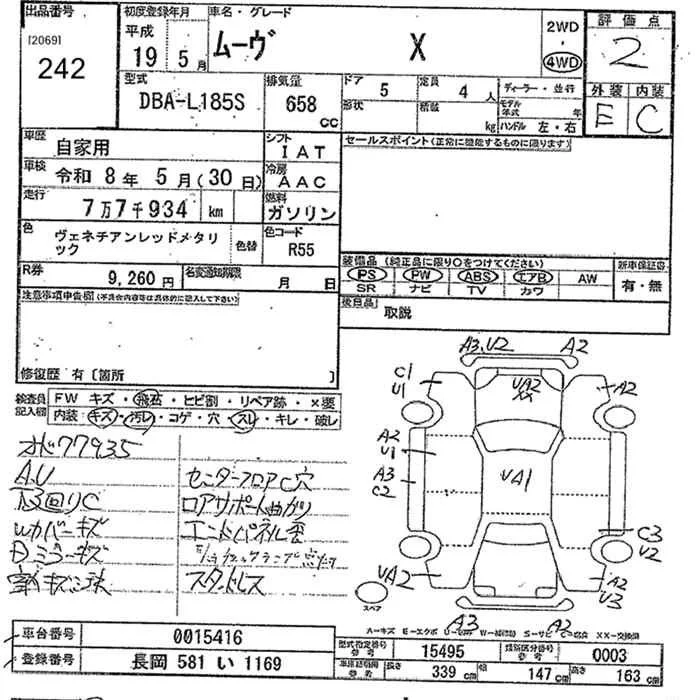 出品番号
[2069]
242
初度登録年月
平成
19 5月
車名・グレード
ムーヴ X
2WD
4WD
評価点
2
外装 内装
E C
型式
DBA-L185S
排気量
658 cc
ドア 5
形状
定員 4 人
積載 kg
ディーラー・並行
モデル年式 年
ハンドル 左・右
車歴
自家用
シフト
IAT
セールスポイント(正常に機能するものに限ります)
車検
令和 8年 5月(30日)
冷房
AAC
走行
7万7千934 km
燃料
ガソリン
色
ヴェネチアンレッドメタリック
色替
色コード
R55
装備品(純正品に限り○をつけてください)
PS PW ABS エアB AW
SR ナビ TV カワ
新車保証書
有・無
R券
9,260円
名変通知期限
月 日
後日品
取説
注意事項申告欄(不具合内容等は具体的に記入して下さい)
修復歴 有〔箇所 〕
検査員記入欄
FW キズ・飛石・ヒビ割・リペア跡・×要
内装:キズ・汚レ・コゲ・穴・スレ・キレ・破レ
オド77935
A.U
下廻りC
Wカバーキズ
ミラーキズ
センターフロアC穴
ロアサポート曲がり
エンドパネル歪
スタッドレス
A3.U2
A2
C1
U1
UA2
XX
A2
A2
U1
A3
C2
UA1
C3
U2
UA2
A2
U3
A3
A2
スペア
車台番号
0015416
登録番号
長岡 581 い 1169
型式指定番号
参考
15495
類別区分番号
参考
0003
長さ 339 cm
幅 147 cm
高さ 163 cm